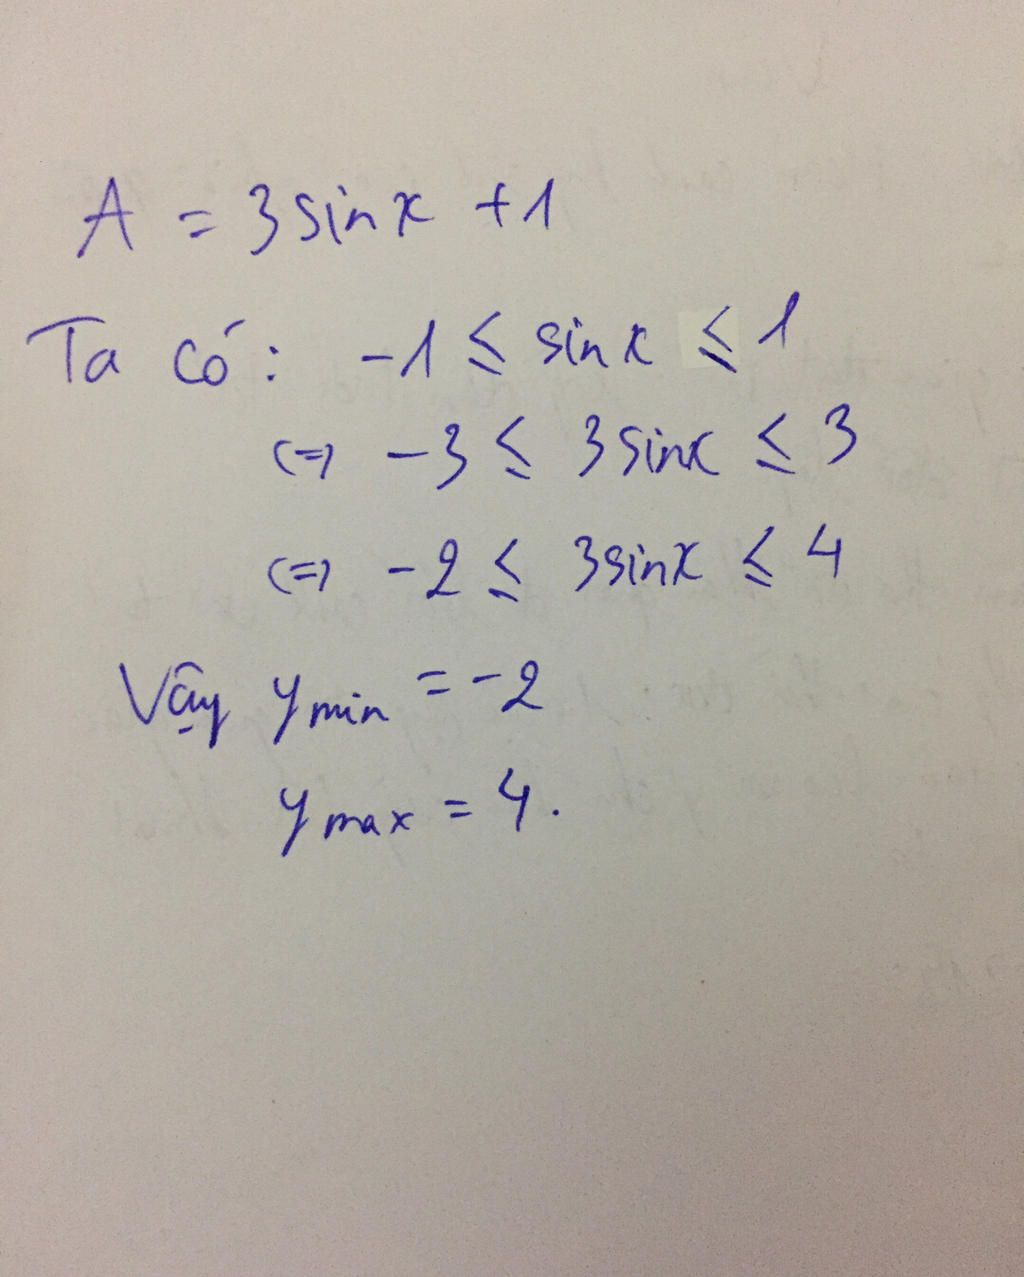 A = 3sinx +1
Ta có: -1 ≤ sinx ≤ 1
<=> -3 ≤ 3sinx ≤ 3
<=> -2 ≤ 3sinx ≤ 4
Vậy ymin = -2
ymax = 4.